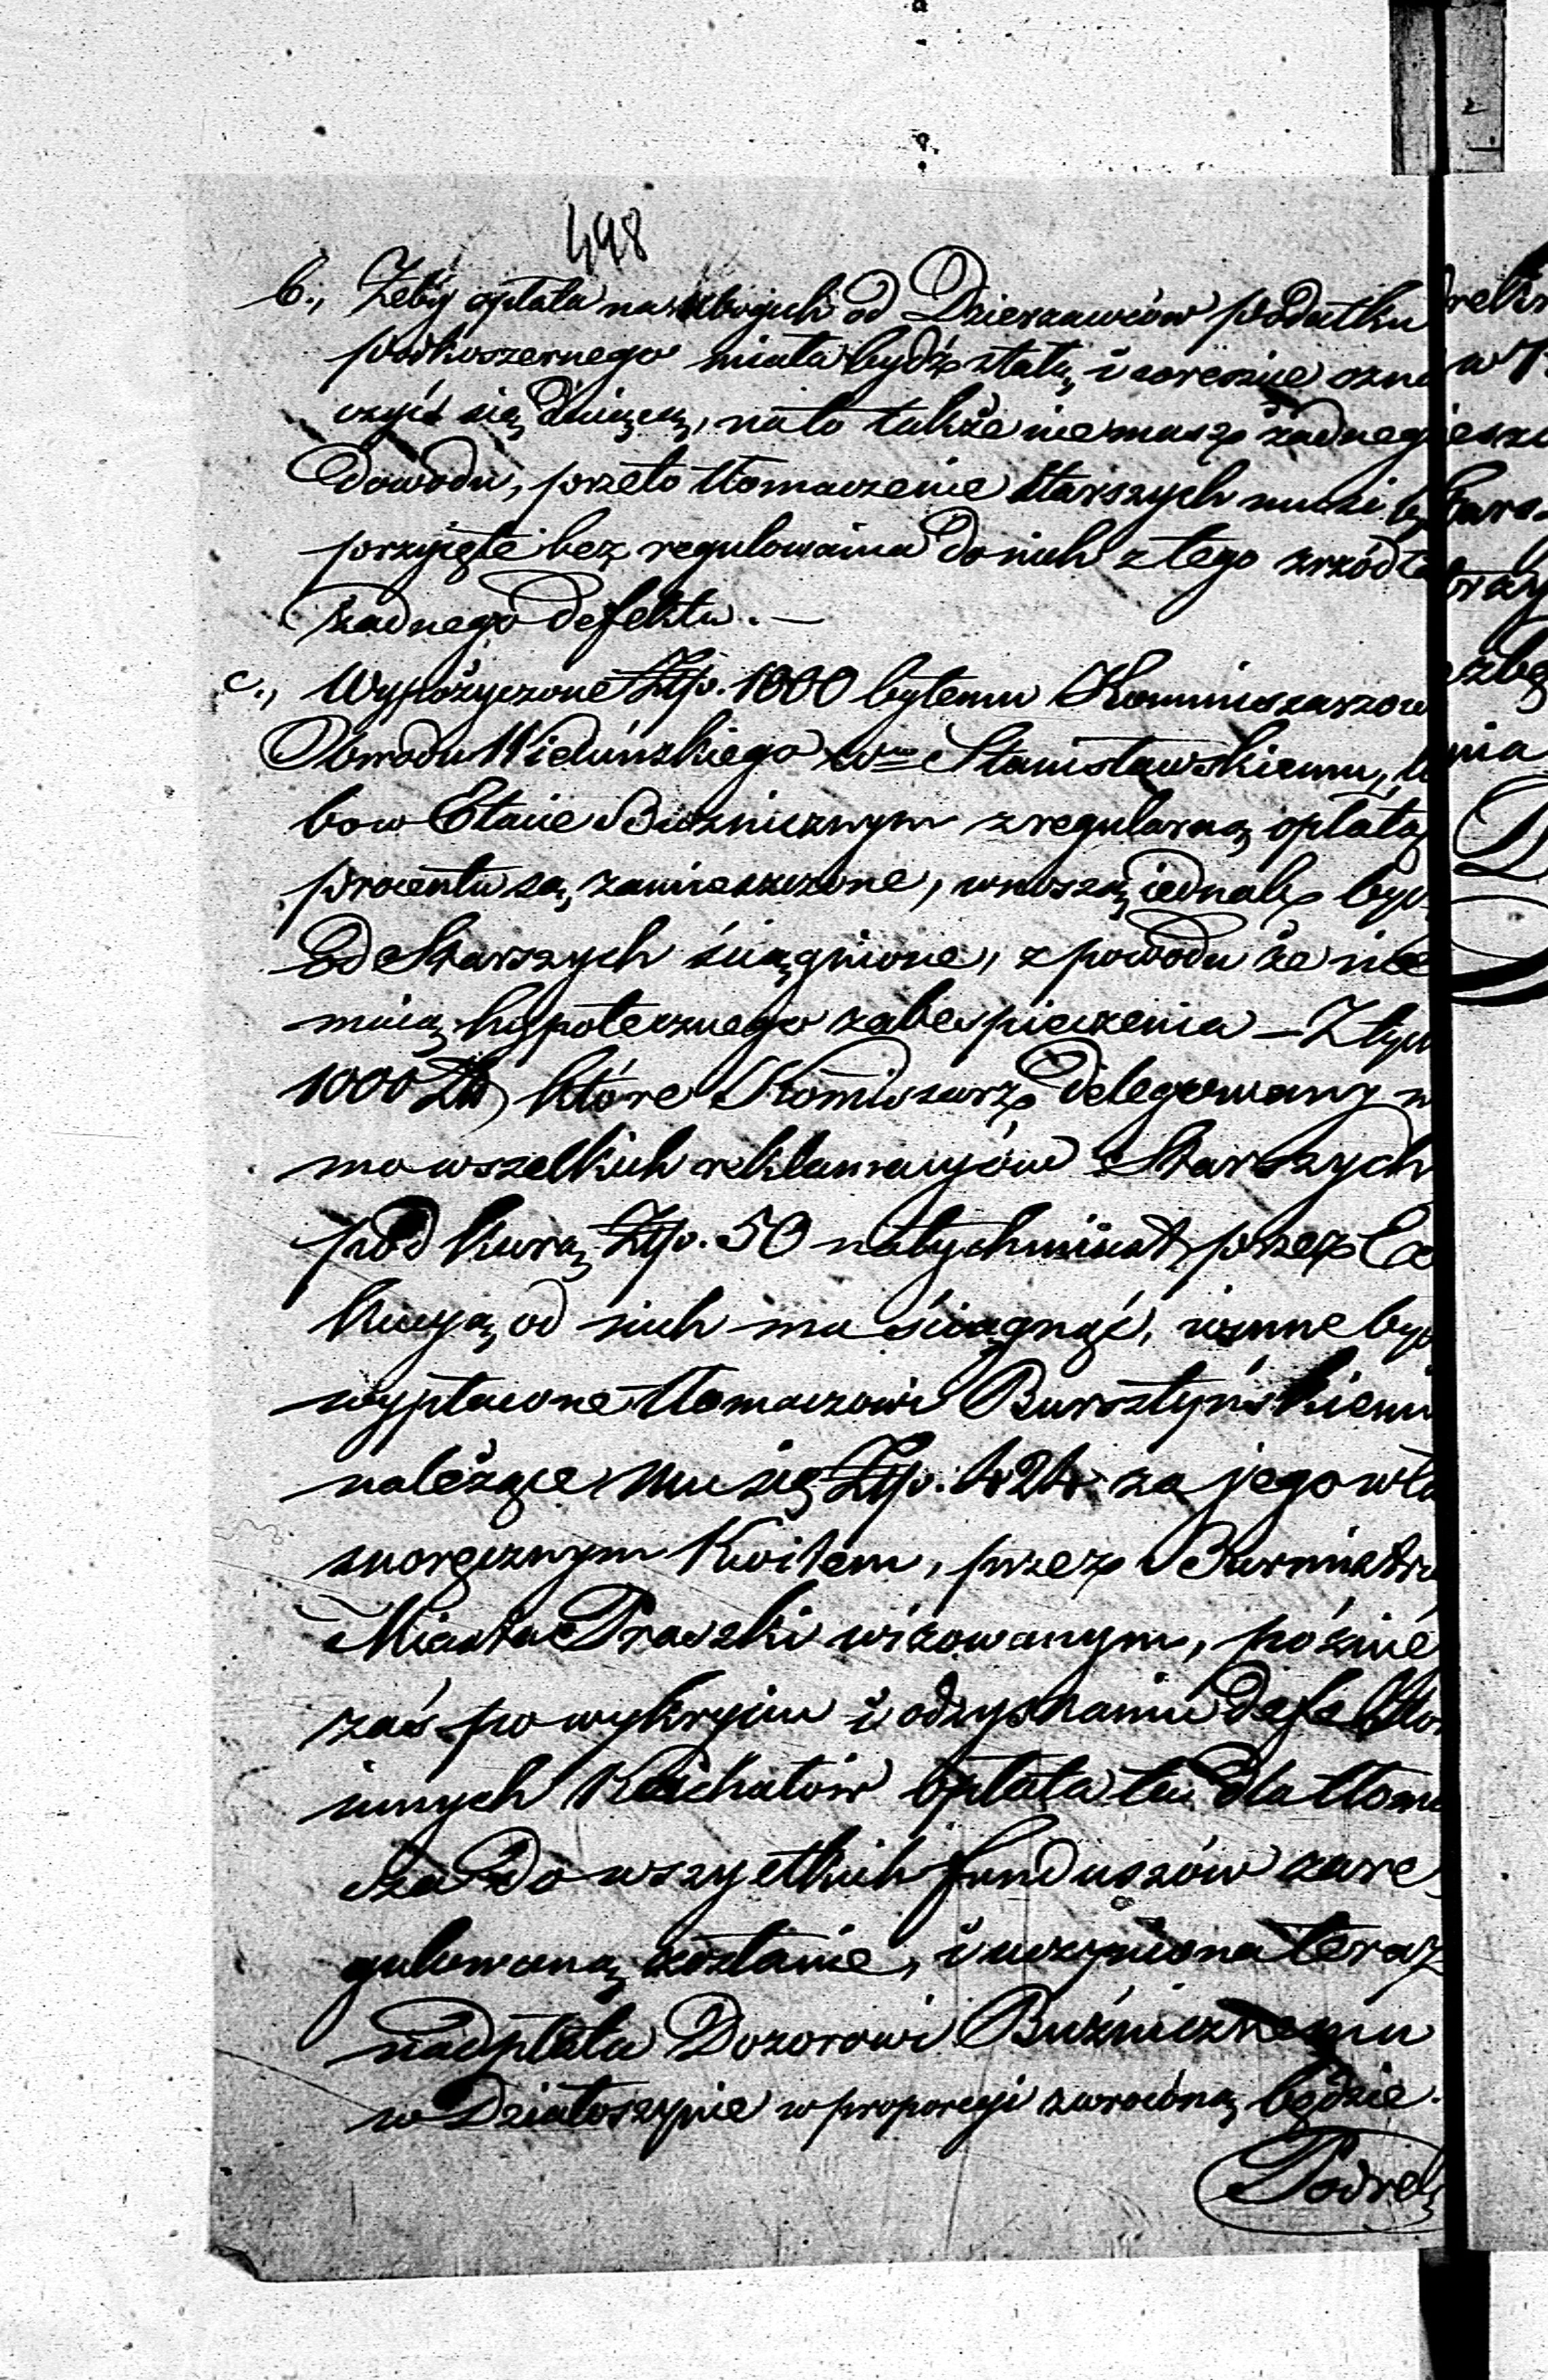 498
b., Żeby opłata na ubogich od Dzierzawców podatku
podkoszernego miała bydź stałą, i corocznie
nato także niemasz żadneg
Dowodu, przeto tłomaczenie Starszych musi
przyięte bez regulowania do nich z tego zrzódła
żadnego Defektu. —
c., Wypożyczone Złp. 1000 byłemu Kommissarzow
Obwodu Wieluńskiego Stanisławskiemu,
bo w Etacie Bużnicznym z regularną opłatą
procentu są, zamieszczone, wnoszą iednak byc
od Starszych ściągnione, z powodu że nie
maią hypotecznego zabespieczenia — Z tych
1000 Zł, które Komissarz Delegowany
mo wszelkich reklamacyów Starszych
pod karą Złp. 50 natychmiast przez Exe
kucyą, od nich ma ściągnąć, winne być
wypłacone tłomaczowi Bursztyńskiemu
należące mu się Złp. 424 za jego wła
snoręcznym Kwitem, przez Burmistrza
Miasta Praszki wizowanym, poźnie
zaś po wykryciu i odzyskaniu Defektow
innych Kachałów opłata ta dla tłoma
cza do wszystkich funduszów zare
gulowaną zostanie, i uczyniona teraz
nadpłata Dozorowi Bużnicznemu
w Działoszynie w proporcyi zwróconą będzie.